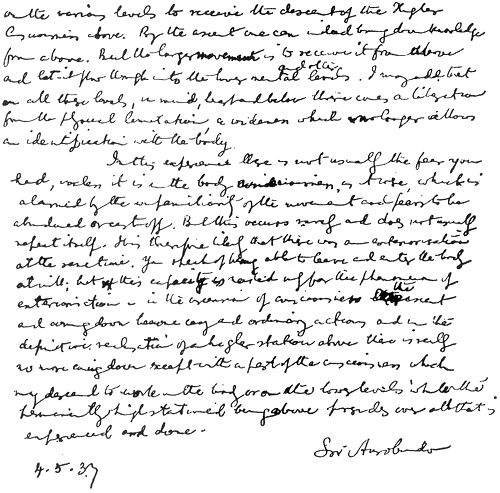 on the various levels to receive the descent of the Higher
Consciousness above. By the ascent one can indeed bring down knowledge
from above. But the larger movement is to receive it from above
and let it flow through into the lower mental and other levels. I may add that
on all these levels, in mind, heart and below there comes a liberation
from the physical limitation a wideness which no longer allows
an identification with the body.
In this experience there is not usually the fear you
had, unless it is in the body consciousness, as it were, which is
alarmed by the unfamiliarity of the movement and fears to be
abandoned or cast off. But this occurs rarely and does not usually
repeat itself. It is therefore likely that there was an exteriorisation
at the same time. You speak of being able to leave and enter the body
at will; but this capacity is needed only for the phenomena of
exteriorisation – in the ascension of consciousness the ascent
and coming down become easy and ordinary actions and in the
definitive realisation of a higher station above there is really
no more coming down except with a part of the consciousness which
may descend to work in the body or on the lower levels while the
permanently high stationed being above presides over all that is
experienced and done.
Sri Aurobindo
4.5.37